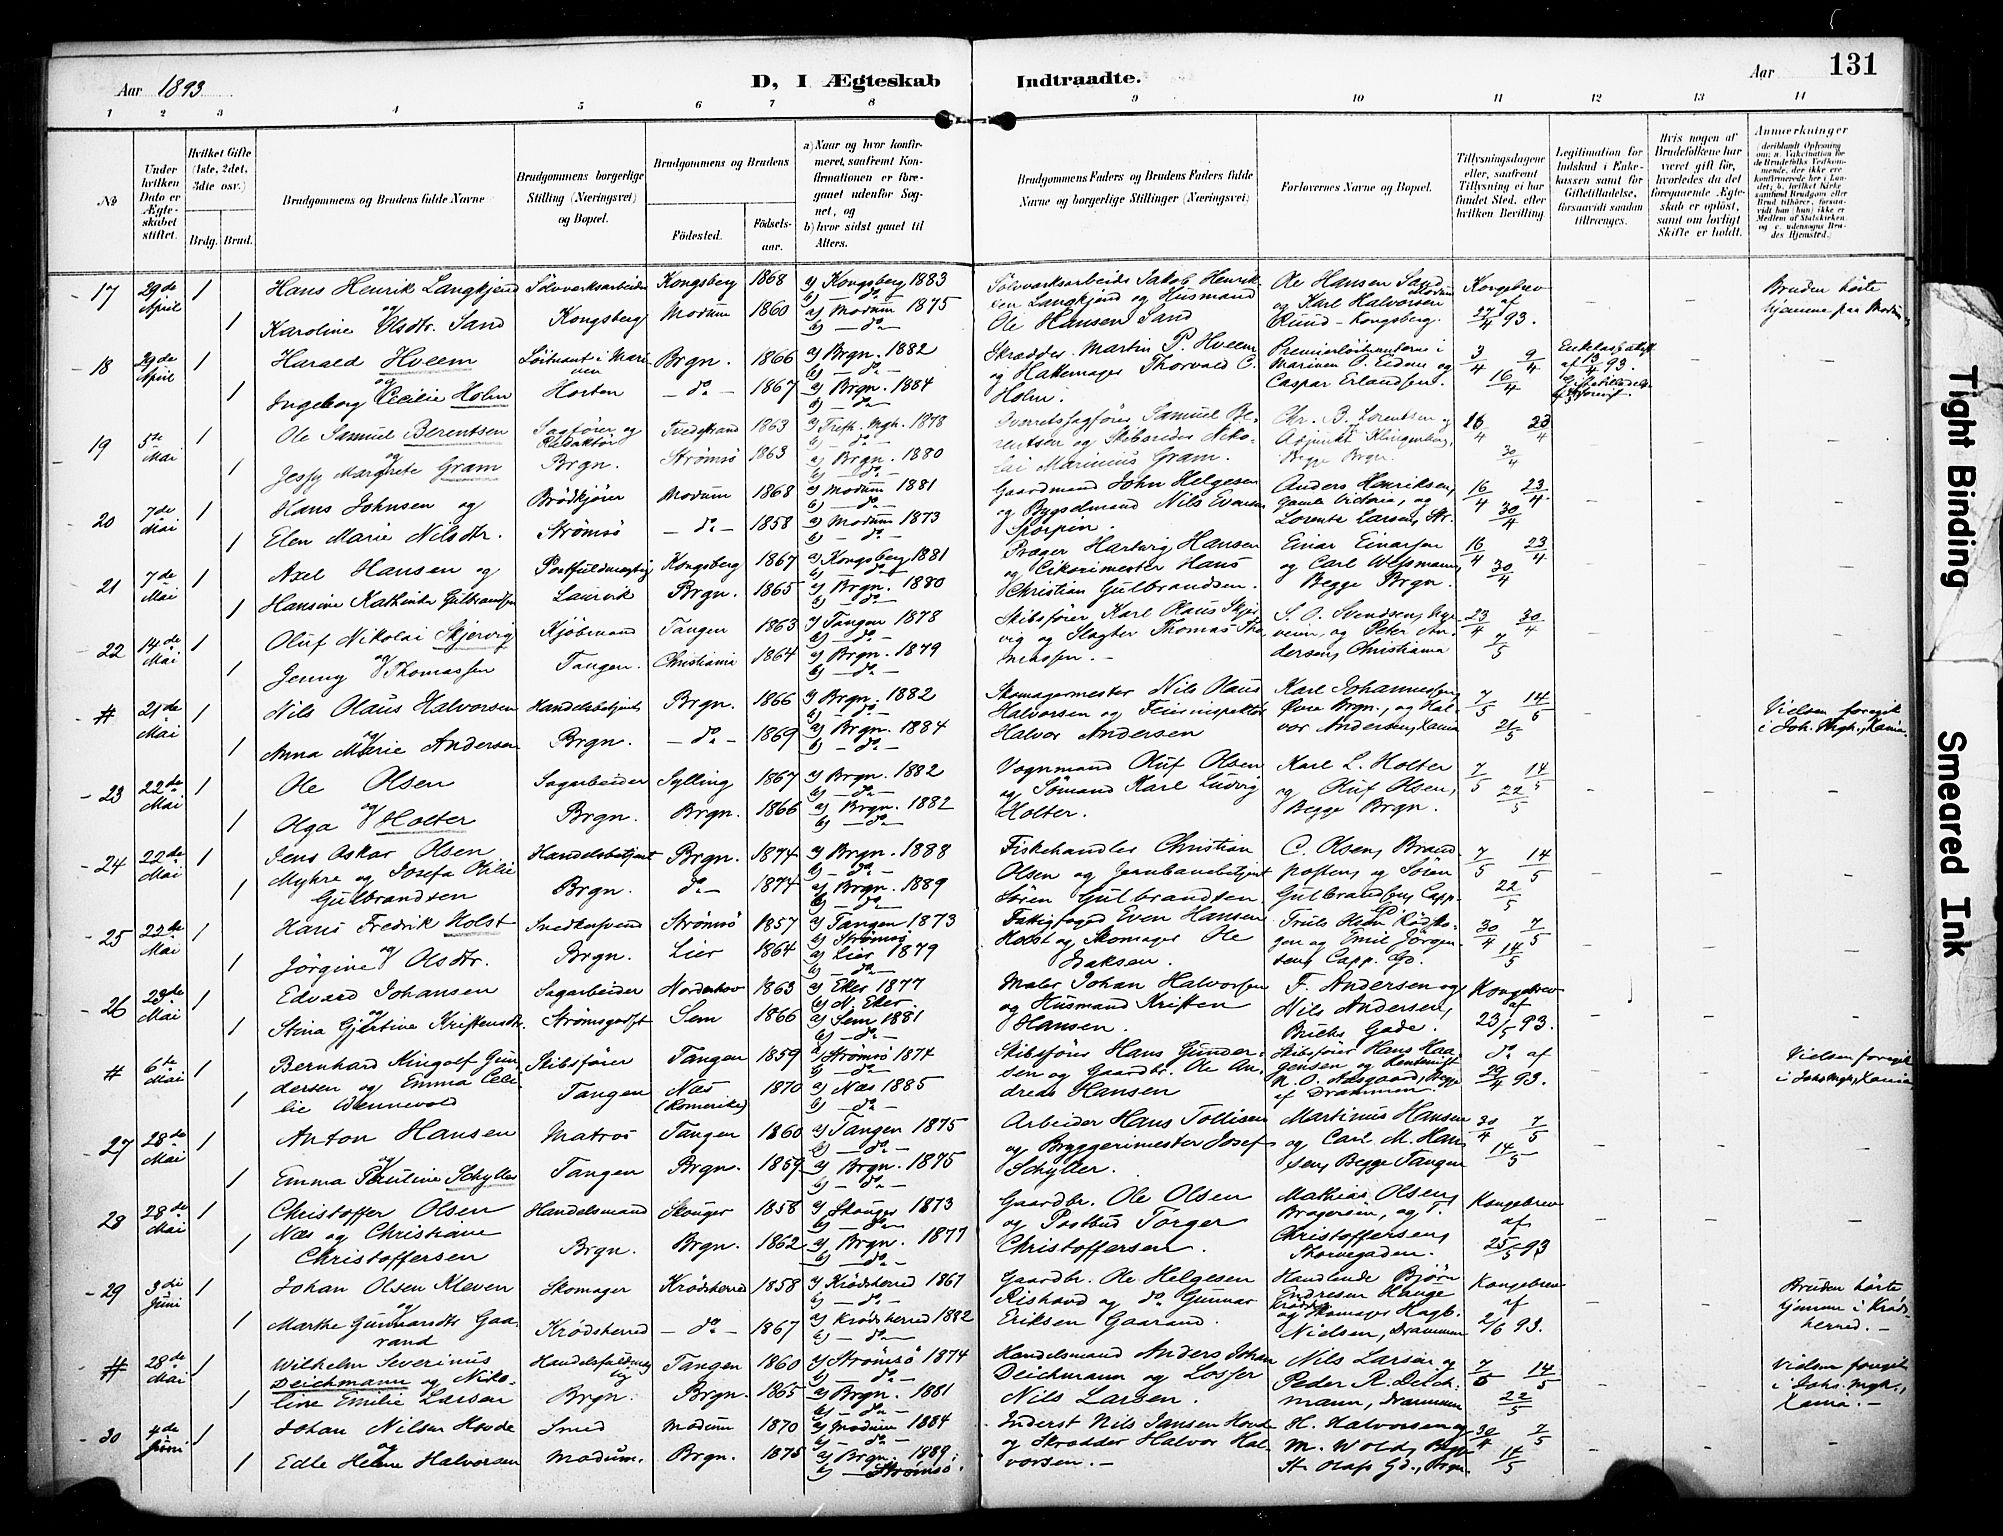 Aar 1893
D, I Ægteskab Indtraadte.
Aar 131
1 2 3 4 5 6 7 8 9 10 11 12 13 14
No
Under hvilken Dato er Ægteskabet stiftet.
Hvilket Gifte (1ste, 2det, 3die osv.)
Brdg. Brud.
Brudgommens og Brudens fulde Navne
Brudgommens borgerlige Stilling (Næringsvei) og Bopæl.
Brudgommens og Brudens
Fødested. Fødsels-aar.
a) Naar og hvor konfirmeret, saafremt Konfirmationen er foregaaet udenfor Sognet, og
b) hvor sidst gaaet til Alters.
Brudgommens Faders og Brudens Faders fulde Navne og borgerlige Stillinger (Næringsvei)
Forlovernes Navne og Bopæl.
Tillysningsdagene eller, saafremt Tillysning ei har fundet Sted, efter hvilken Bevilling
Legitimation for Indskud i Enkekassen samt for Giftetilladelse, forsaavidt saadan tiltrænges.
Hvis nogen af Brudefolkene har været gift før, hvorledes da det foregaaende Ægteskab er opløst, samt om lovligt Skifte er holdt.
Anmærkninger
17 29de April 1 Hans Henrik Langkjend Sølvverksarbeider Kongsberg 1868 a) Kongsberg 1883 b) — do — Sølvverksarbeider Jakob Henriksen Langkjend og Husmand Ole Hansen Sand Ole Hansen Sand Modum og Karl Halvorsen Rund - Kongsberg. Kongebrev af 27/4 93. Bruden hørte hjemme paa Modum
1 og Karoline Olsdtr. Sand Kongsberg Modum 1860 a) Modum 1875 b) — do —
18 29de April 1 Harald Hveem Løitnant i Marinen Brgn. 1866 a) Brgn. 1882 b) — do — Skrædder Martin P. Hveem og Hattemager Thorvald C. Holm. Premierløitnanterne i Marinen O. Eidem og Caspar Erlandsen. 3/4 9/4 16/4
1 og Ingeborg Cecilie Holm Horten — do — 1867 a) Brgn. 1884 b) — do —
19 5te Mai 1 Ole Samuel Berentsen Sagfører og Redaktør Tvedestrand 1863 1878 Overretssagfører Samuel Berentsen og Skibsreder Nikolai Marinius Gram. Chr. B. Lorentsen og Adjunkt Klingenberg, Begge Brgn. 16/4 23/4 30/4
1 og Jessy Margrete Gram Brgn. Strømsø 1863 a) Brgn. 1880 b) — do —
20 7de Mai 1 Hans Johnsen og Brødkjører Modum 1868 a) Modum 1881 b) — do — Gaardmand John Helgesen og Bygselmand Nils Evensen Anders Henriksen, Gamle Victoria, og Lorents Larsen, Str. 16/4 23/4 30/4
1 Elen Marie Nilsdtr. Strømsø — do — 1858 a) Modum 1873 b) — do —
21 7de Mai 1 Axel Hansen og Postfuldmægtig Kongsberg 1867 a) Kongsberg 1881 b) — do — Præger Hartvig Hansen og Cikerimester Hans Christian Gulbrandsen. Einar Einarsen og Carl Wessmann, Begge Brgn. 16/4 23/4 30/4
1 Hansine Kathinka Gulbrandsen Laurvik Brgn. 1865 a) Brgn. 1880 b) — do —
22 14de Mai 1 Oluf Nikolai Skjervig Kjøbmand Tangen 1863 a) Tangen 1878 b) — do — Skibsfører Karl Olaus Skjervig og Slagter Thomas Thomassen. — S. O. Svendsen, og Peter Andersen, Christiania 23/4 30/4 7/5
1 og Jenny Thomassen Tangen. Christiania 1864 a) Brgn. 1879 b) — do —
# 21de Mai 1 Nils Olaus Halvorsen Handelsbetjent Brgn. 1866 a) Brgn. 1882 b) — do — Skomagermester Nils Olaus Halvorsen og Feierinspektør Halvor Andersen Karl Johannesen, Øvre Brgn., og Halvor Andersen, Xania 7/5 14/5 21/5 Vielsen foregik i Joh. Mgh., Xania.
1 og Anna Marie Andersen Brgn. — do — 1869 a) Brgn. 1884 b) — do —
23 22de Mai 1 Ole Olsen Sagarbeider Sylling 1867 a) Brgn. 1882 b) — do — Vognmand Oluf Olsen og Sømand Karl Ludvig Holter. Karl L. Holter og Oluf Olsen, Begge Brgn. 7/5 14/5 22/5
1 og Olga Holter Brgn. Brgn. 1866 a) Brgn. 1882 b) — do —
24 22de Mai 1 Jens Oskar Olsen Myhre og Josefa Otilie Gulbrandsen Handelsbetjent Brgn. 1874 a) Brgn. 1888 b) — do — Fiskehandler Christian Olsen og Jernbanebetjent Søren Gulbrandsen C. Olsen, Brandposten, og Søren Gulbrandsen, Capp. 7/5 14/5 22/5
1 Brgn. do — 1874 a) Brgn. 1889 b) — do —
25 22de Mai 1 Hans Fredrik Holst Snedkersvend Strømsø 1857 a) Tangen 1873 b) Strømsø Fattigfoged Even Hansen Holst og Skomager Ole Isaksen. Truls Olsen Rødskogen og Emil Jørgensen, Capp. Gd. 30/4 7/5 14/5
1 og Jørgine Olsdtr. Brgn. Lier 1864 a) Lier 1879 b) — do —
26 23de Mai 1 Edvard Johansen Sagarbeider Norderhov 1863 a) Eker 1877 b) N. Eker. Maler Johan Halvorsen og Husmand Kristen Hansen. F. Andersen og Nils Andersen, Gade. Kongebrev af 23/5 93.
1 og Stina Gjertine Kristensdtr. Strømsgodset Sem 1866 a) Sem 1881 b) — do —
# 6te Mai 1 Bernhard Kingolf Gundersen og Emma Cecilie Wennevold Skibsfører Tangen 1859 a) Strømsø 1874 b) — do — Skibsfører Hans Gundersen og Gaardbr. Ole Andreas Hansen Skibsfører Hans Haagensen og N. O. Aasgaard, Begge af Drammen do af 29/4 93. Vielsen foregik i Johs Mgh., Xania
1 Tangen Næs (Romerike) 1870 a) Næs 1885 b) — do —
27 28de Mai 1 Anton Hansen Matros Tangen 1860 a) Tangen 1875 b) — do — Arbeider Hans Tollisen og Bryggerimester Josef Schylter. Martinius Hansen og Carl M. Hansen, Begge Tangen 30/4 7/5 14/5
1 og Emma Pauline Schylter Tangen Brgn. 1859 a) Brgn. 1875 b) — do —
28 28de Mai 1 Christoffer Olsen Næs og Christiane Christoffersen Handelsmand Skouger 1858 a) Skouger 1873 b) — do — Gaardbr. Ole Olsen og Postbud Torger Christoffersen. Mathias Olsen, Bragersøen, og T. Christoffersen, Thorvegaden. Kongebrev af 25/5 93
1 Brgn. Brgn. 1862 a) Brgn. 1877 b) — do —
29 3die Juni 1 Johan Olsen Kleven Skomager Krødsherred 1858 a) Krødsherred 1867 b) — do — Gaardbr. Ole Helgesen Rishavd og do Gunnar Eriksen Gaarand. Handlende Bjørn Endresen Hauge Krødsh. og Skomager Hagb. Nielsen, Drammen Kongebrev af 2/6 93. Bruden hørte hjemme i Krødsherred. —
1 og Marthe Gunnarsdtr Gaarand Krødsherred — do — 1867 a) Krødsherred 1882 b) — do —
# 28de Mai 1 Wilhelm Severinus Deichmann og Nikoline Emilie Larsen Handelsfuldmægtig Tangen 1860 a) Strømsø 1874 b) — do — Handelsmand Anders Johan Deichmann og Losser Nils Larsen. Nils Larsen og Peder R. Deichmann, Drammen 7/5 14/5 22/5 Vielsen foregik i Johs. Mgh., Xania. —
1 Brgn. Brgn. 1865 a) Brgn. 1881 b) — do —
30 4de Juni 1 Johan Nilsen Hovde Smed Modum 1870 a) Modum 1884 b) — do — Inderst Nils Jansen Hovde og Skrædder Halvor Halvorsen. — H. Halvorsen og M. Wold, Begge St. Olafs Gd., Brgn. 30/4 7/5 14/5
1 og Edle Helene Halvorsen Modum. Brgn. 1875 a) Brgn. 1889. b) — Strømsø.
Tight Binding
Smeared Ink